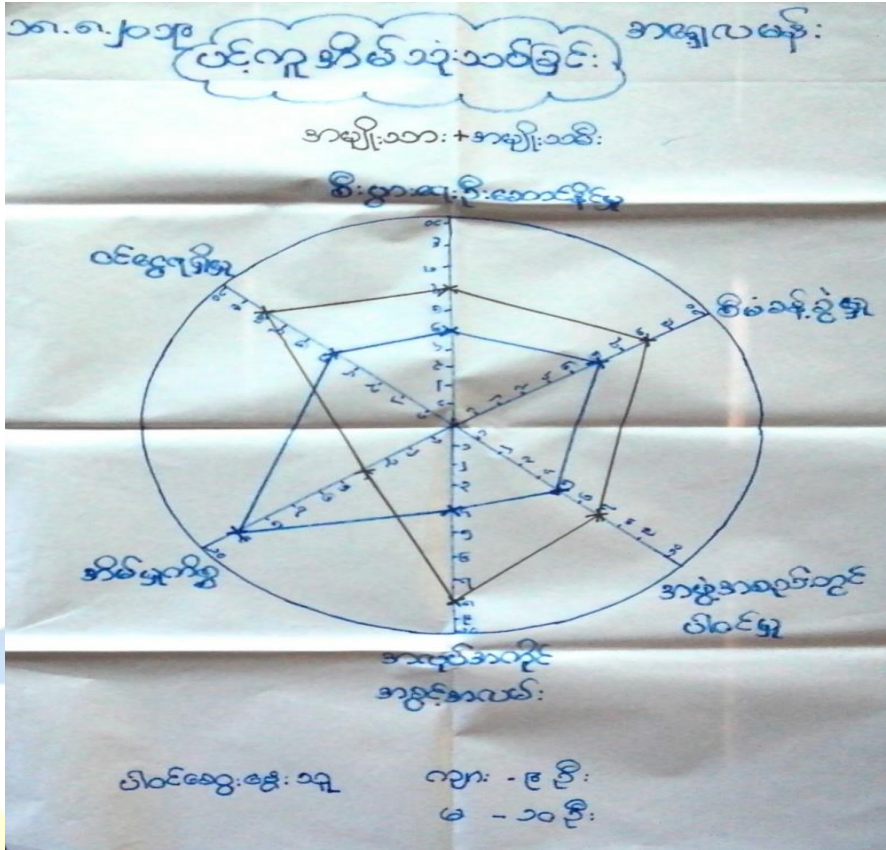 ၁၈.၈.၂၀၁၉
အရှေ့လမန်း
ပင့်ကူအိမ်သုံးသပ်ခြင်း
အမျိုးသား + အမျိုးသမီး
စီးပွားရေးဦးဆောင်နိုင်မှု
ဝင်ငွေရရှိမှု
စီမံခန့်ခွဲမှု
အိမ်မှုကိစ္စ
အဖွဲ့အစည်းတွင်
ပါဝင်မှု
အလုပ်အကိုင်
အခွင့်အလမ်း
ပါဝင်ဆွေးနွေးသူ
ကျား - ၉ ဦး
မ - ၁၀ ဦး